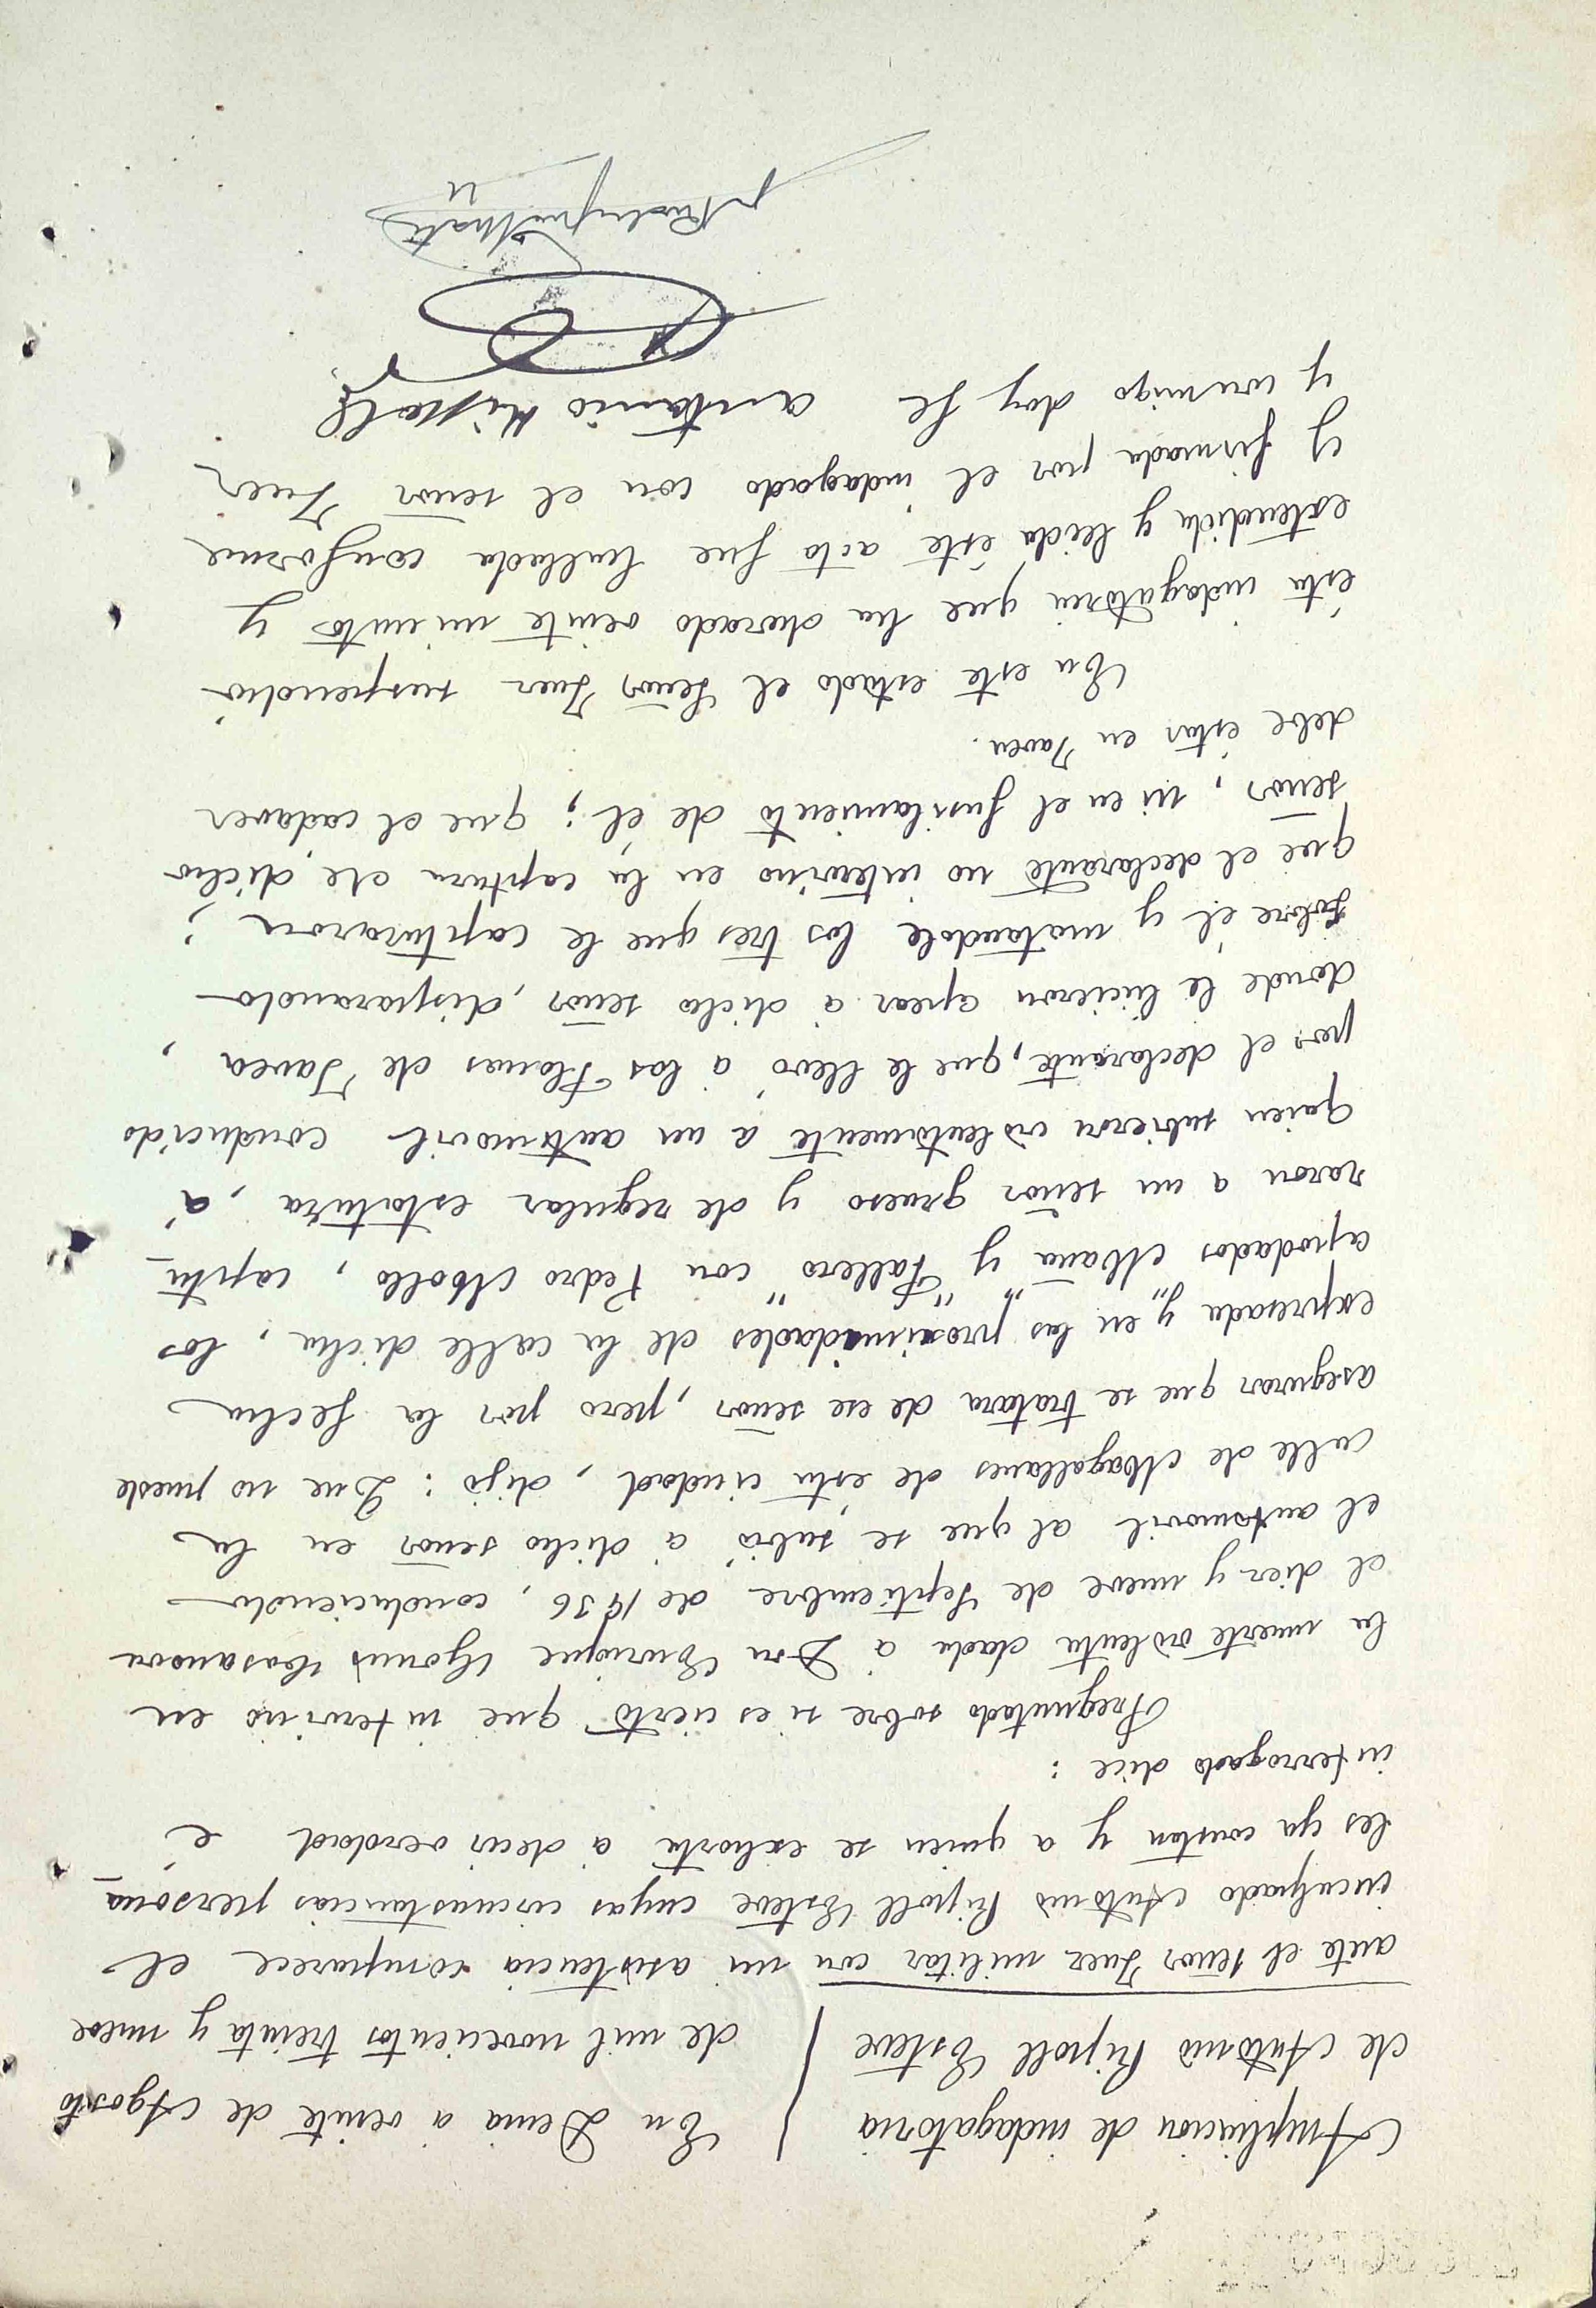 Ampliacion de indagatoria
de Antonio Ripoll Esteve
En Denia a veinte de Agosto
de mil novecientos treinta y nueve
ante el señor Juez militar con mi asistencia comparece el
inculpado Antonio Ripoll Esteve cuyas circunstancias persona-
les ya constan y a quien se exhorta á decir verdad é
interrogado dice:
Preguntado sobre si es cierto que intervino en
la muerte violenta dada á Don Enrique Gornis Casanova
el diez y nueve de Septiembre de 1936, conduciendo
el automovil al que se subió á dicho señor en la
calle de Magallanes de esta ciudad, dijo: Que no puede
asegurar que se tratara de ese señor, pero por la fecha
expresada y en las proximidades de la calle dicha, los
apodados "Mana" y "Fallero" con Pedro Moll, captu-
raron a un señor grueso y de regular estatura, á
quien subieron violentamente á un automovil conducido
por el declarante, que le llevó á los Planes de Javea,
donde le hicieron apear á dicho señor, disparando
sobre él y matandole los tres que le capturaron;
que el declarante no intervino en la captura de dicho
señor, ni en el fusilamiento de él; que el cadaver
debe estar en Javea.
En este estado el Señor Juez suspendió
esta indagatoria que ha durado veinte minutos y
extendida y leida este acto fue hallada conforme
y firmada por el indagado con el señor Juez
y conmigo doy fe
antonio Ripoll